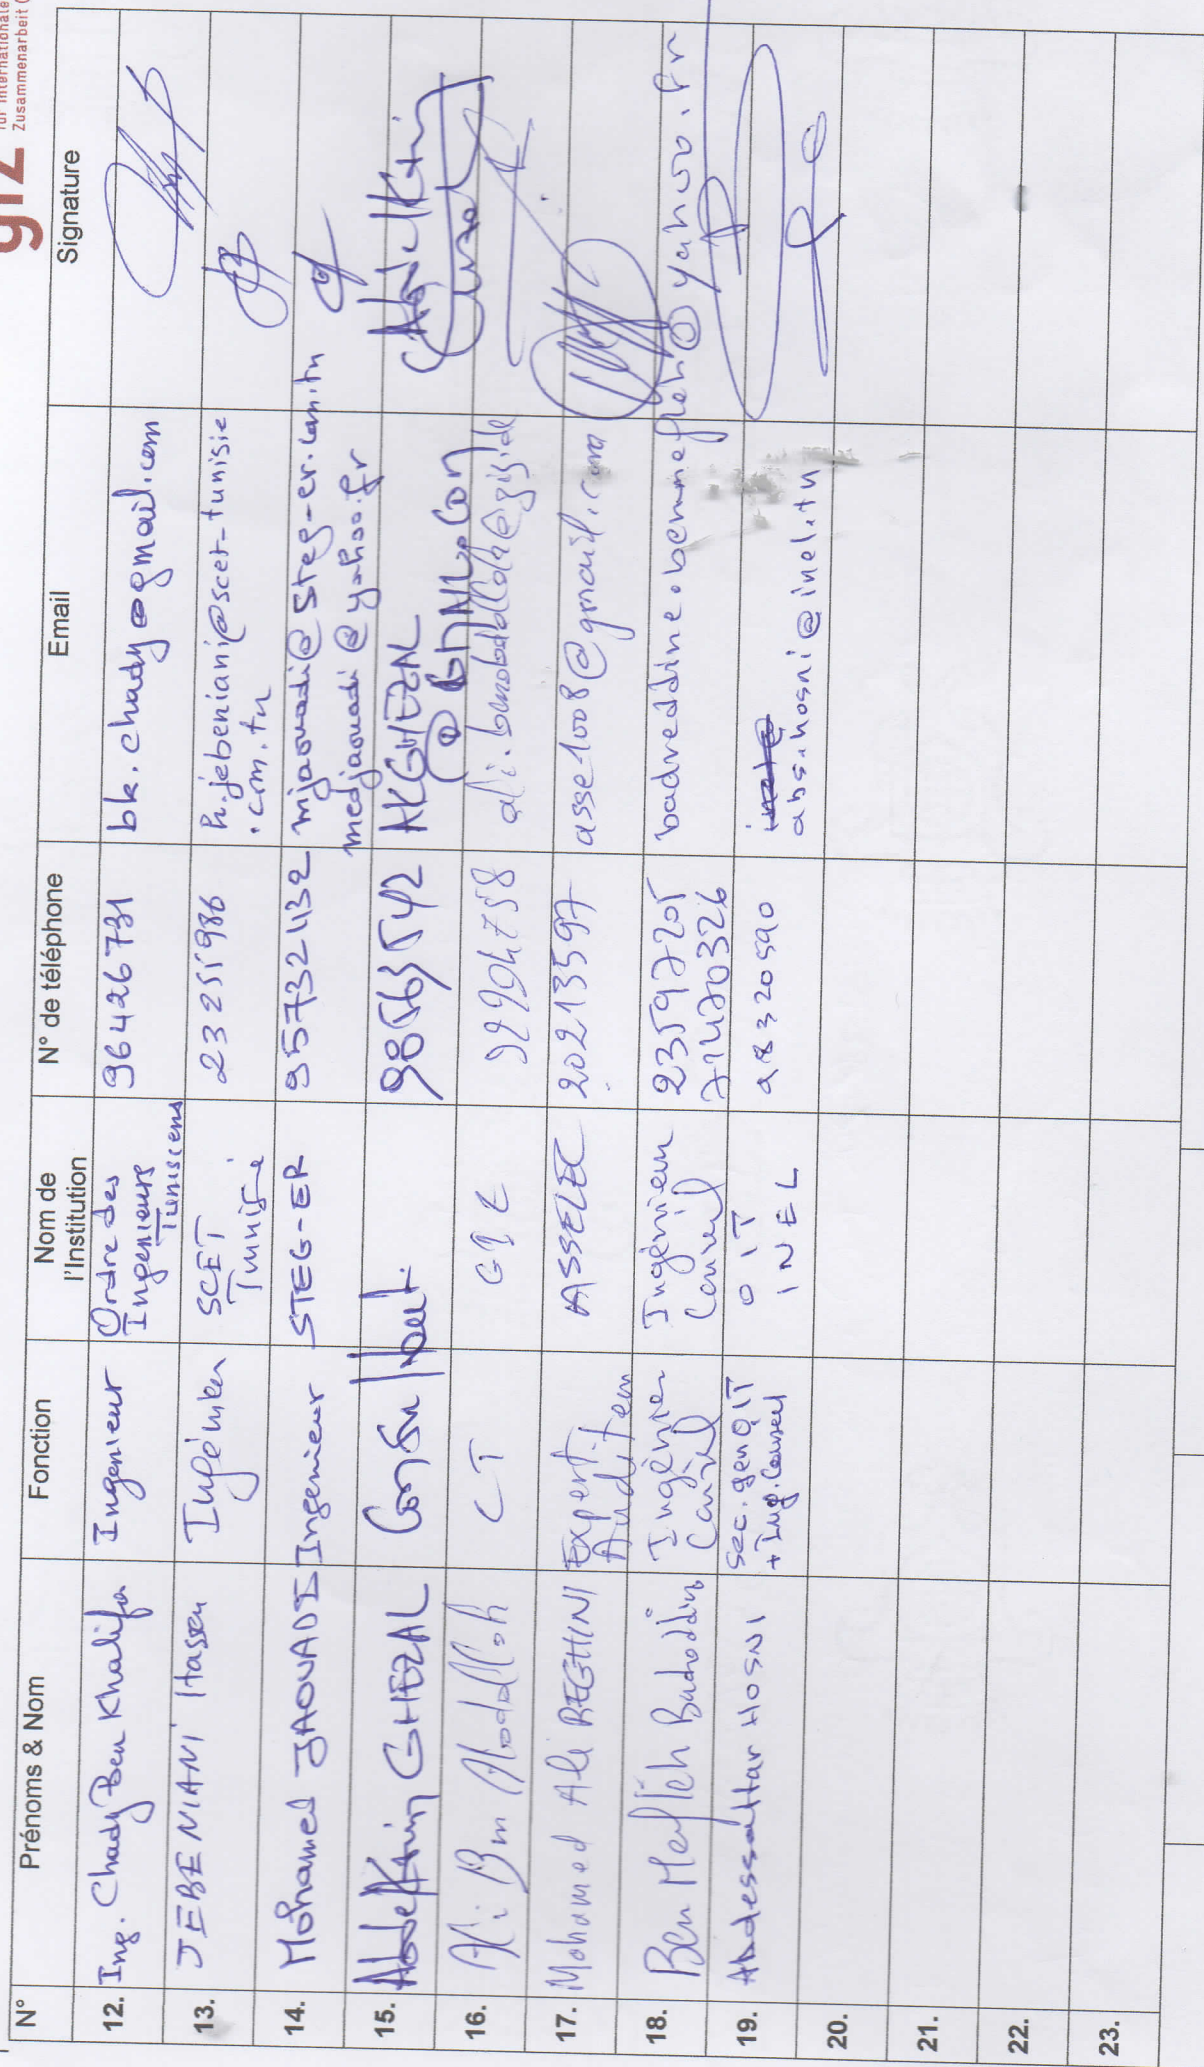 giz
für Internationale
Zusammenarbeit (
N° Prénoms & Nom Fonction Nom de l'Institution N° de téléphone Email Signature
12. Ing. Chady Ben Khalifa Ingenieur Ordre des Ingenieurs Tunisiens 96426731 bk.chady@gmail.com
13. JEBENIANI Hassen Ingénieur SCET Tunisie 23251986 h.jebeniani@scet-tunisie
.com.tn
14. Mohamed JAOUADI Ingenieur STEG-ER mjaouadi@steg-er.com.tn
medjaouadi@yahoo.fr
15. Abdelkrim GHEZAL Consultant 98563542 AKGHEZAL
@GMAIL.COM Abdelkrim
16. Ali Ben Abdallah CT GIZ
17. Mohamed Ali REGHINI Expert Auditeur ASSELEC 20213597 asse1008@gmail.com
18. Ben Mefteh Badreddine Ingénieur Conseil Ingénieur Conseil 23597205 badreddine.benmefteh@yahoo.fr
71470326
19. Abdessattar HOSNI Sec. gen OIT OIT 98320590
+ Ing. Conseil INEL abs.hosni@inel.tn
20.
21.
22.
23.